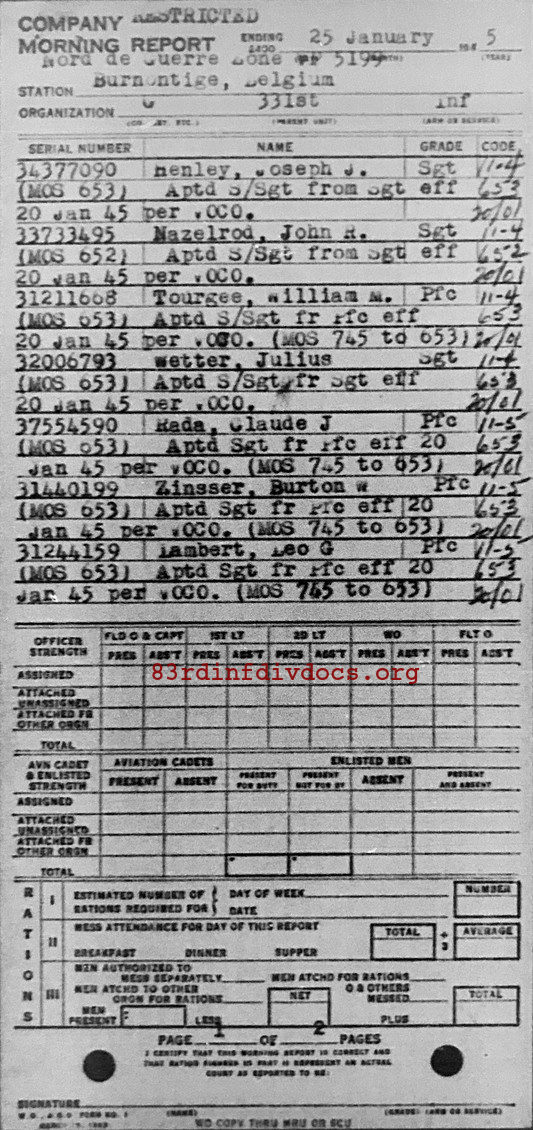 COMPANY RESTRICTED
MORNING REPORT ENDING 2400 25 January 194 5
Nord de Guerre Zone 5199 (MONTH) (YEAR)
STATION Burnontige, Belgium
ORGANIZATION G 331st Inf
(CO., BT., ETC.) (PARENT UNIT) (ARM OR SERVICE)
SERIAL NUMBER NAME GRADE CODE
34377090 Henley, Joseph J. Sgt 11-4
(MOS 653) Aptd S/Sgt from Sgt eff 653
20 Jan 45 per VOCO. 20/01
33733495 Nazelrod, John R. Sgt 11-4
(MOS 652) Aptd S/Sgt from Sgt eff 652
20 Jan 45 per VOCO. 20/01
31211668 Tourgee, William M. Pfc 11-4
(MOS 653) Aptd S/Sgt fr Pfc eff 653
20 Jan 45 per VOCO. (MOS 745 to 653) 20/01
32006793 Wetter, Julius Sgt 11-4
(MOS 653) Aptd S/Sgt fr Sgt eff 653
20 Jan 45 per VOCO. 20/01
37554590 Rada, Claude J Pfc 11-5
(MOS 653) Aptd Sgt fr Pfc eff 20 653
Jan 45 per VOCO. (MOS 745 to 653) 20/01
31440199 Zinsser, Burton W Pfc 11-5
(MOS 653) Aptd Sgt fr Pfc eff 20 653
Jan 45 per VOCO. (MOS 745 to 653) 20/01
31244159 Lambert, Leo G Pfc 11-5
(MOS 653) Aptd Sgt fr Pfc eff 20 653
Jan 45 per VOCO. (MOS 745 to 653) 20/01
OFFICER STRENGTH FLD O & CAPT 1ST LT 2D LT WO FLT O
PRES ABS'T PRES ABS'T PRES ABS'T PRES ABS'T PRES ABS'T
ASSIGNED
83rdinfdivdocs.org
ATTACHED UNASSIGNED
ATTACHED FR OTHER ORGN
TOTAL
AVN CADET & ENLISTED STRENGTH AVIATION CADETS ENLISTED MEN
PRESENT ABSENT PRESENT FOR DUTY PRESENT NOT FOR DY ABSENT PRESENT AND ABSENT
ASSIGNED
ATTACHED UNASSIGNED
ATTACHED FR OTHER ORGN
TOTAL
RATIONS
I ESTIMATED NUMBER OF RATIONS REQUIRED FOR DAY OF WEEK NUMBER
DATE
II MESS ATTENDANCE FOR DAY OF THIS REPORT TOTAL ÷ 3 AVERAGE
BREAKFAST DINNER SUPPER
III MEN AUTHORIZED TO MESS SEPARATELY MEN ATCHD FOR RATIONS
MEN ATCHD TO OTHER ORGN FOR RATIONS NET O & OTHERS MESSED TOTAL
MEN PRESENT LESS PLUS
PAGE 1 OF 2 PAGES
I CERTIFY THAT THIS MORNING REPORT IS CORRECT AND
THAT RATION FIGURES IN PART III REPRESENT AN ACTUAL
COUNT AS REPORTED TO ME:
SIGNATURE
W.D., A.G.O. FORM NO. 1 (NAME) (GRADE) (ARM OR SERVICE)
NO COPY THRU MRU OR SCU